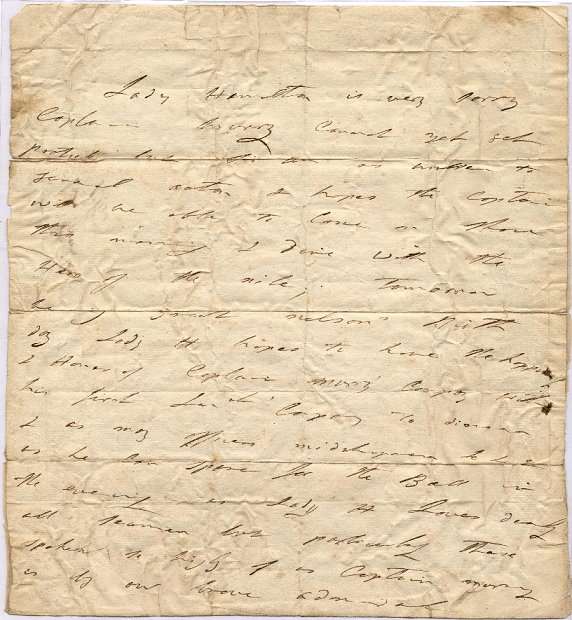 Lady Hamilton is very sorry
Captain Murray Cannot yet get
but Sir Wm as written to
General acton & hopes the Captain
will be able to Come on shore
this morning & dine with the
Hero of the nile, Tomorrow
being great nelson's Birth
day Lady H hopes to have the happiness
& Honor of Captain Murray's Company with
his first Lieut Company to dinner
& as many officers midshipmen &
as he can spare for the Ball in
the evening as Lady H Loves dearly
all seamen but particularly those
spoken so high of as Captain murray
is by our brave admiral